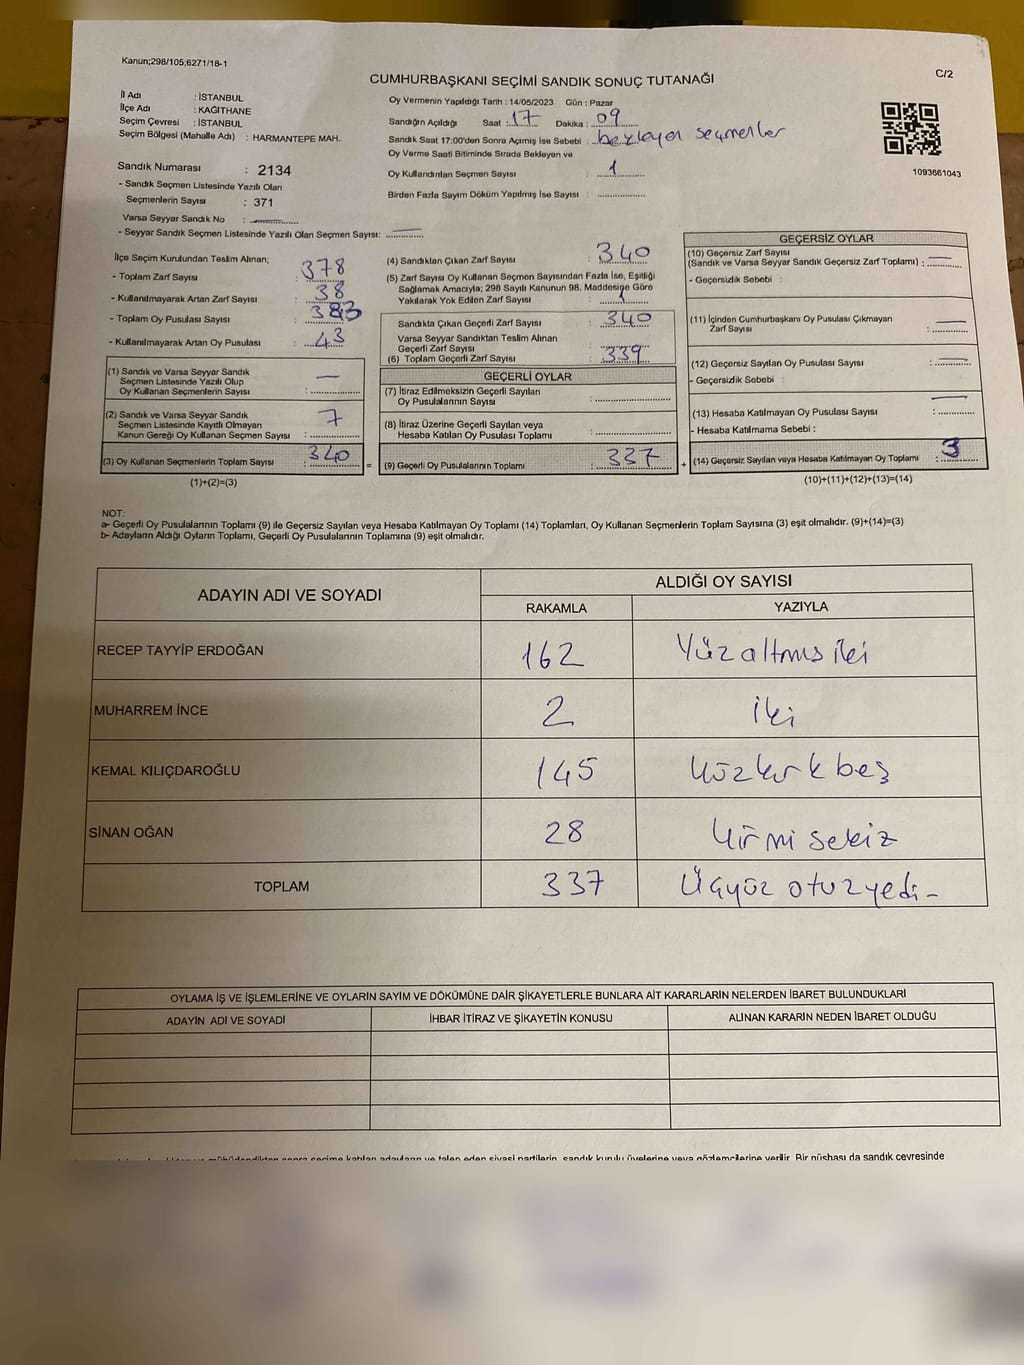 Kanun;298/105;6271/18-1
C/2
CUMHURBAŞKANI SEÇİMİ SANDIK SONUÇ TUTANAĞI
İl Adı : İSTANBUL
İlçe Adı : KAĞITHANE
Seçim Çevresi : İSTANBUL
Seçim Bölgesi (Mahalle Adı) : HARMANTEPE MAH.
Sandık Numarası : 2134
- Sandık Seçmen Listesinde Yazılı Olan
Seçmenlerin Sayısı : 371
Varsa Seyyar Sandık No :
- Seyyar Sandık Seçmen Listesinde Yazılı Olan Seçmen Sayısı:
Oy Vermenin Yapıldığı Tarih : 14/05/2023 Gün : Pazar
Sandığın Açıldığı Saat : 17 Dakika : 09
Sandık Saat 17:00'den Sonra Açımış İse Sebebi : bekleyen seçmenler
Oy Verme Saati Bitiminde Sırada Bekleyen ve
Oy Kullandırılan Seçmen Sayısı : 1
Birden Fazla Sayım Döküm Yapılmış İse Sayısı :
1093661043
İlçe Seçim Kurulundan Teslim Alınan;
- Toplam Zarf Sayısı : 378
- Kullanılmayarak Artan Zarf Sayısı : 38
- Toplam Oy Pusulası Sayısı : 383
- Kullanılmayarak Artan Oy Pusulası : 43
(1) Sandık ve Varsa Seyyar Sandık
Seçmen Listesinde Yazılı Olup
Oy Kullanan Seçmenlerin Sayısı :
(2) Sandık ve Varsa Seyyar Sandık
Seçmen Listesinde Kayıtlı Olmayan
Kanun Gereği Oy Kullanan Seçmen Sayısı : 7
(3) Oy Kullanan Seçmenlerin Toplam Sayısı : 340
(1)+(2)=(3)
(4) Sandıktan Çıkan Zarf Sayısı : 340
(5) Zarf Sayısı Oy Kullanan Seçmen Sayısından Fazla İse, Eşitliği
Sağlamak Amacıyla; 298 Sayılı Kanunun 98. Maddesine Göre
Yakılarak Yok Edilen Zarf Sayısı : 1
Sandıkta Çıkan Geçerli Zarf Sayısı : 340
Varsa Seyyar Sandıktan Teslim Alınan
Geçerli Zarf Sayısı
(6) Toplam Geçerli Zarf Sayısı : 339
GEÇERLİ OYLAR
(7) İtiraz Edilmeksizin Geçerli Sayılan
Oy Pusulalarının Sayısı :
(8) İtiraz Üzerine Geçerli Sayılan veya
Hesaba Katılan Oy Pusulası Toplamı :
= (9) Geçerli Oy Pusulalarının Toplamı : 337
GEÇERSİZ OYLAR
(10) Geçersiz Zarf Sayısı
(Sandık ve Varsa Seyyar Sandık Geçersiz Zarf Toplamı) :
- Geçersizlik Sebebi :
(11) İçinden Cumhurbaşkanı Oy Pusulası Çıkmayan
Zarf Sayısı :
(12) Geçersiz Sayılan Oy Pusulası Sayısı :
- Geçersizlik Sebebi :
(13) Hesaba Katılmayan Oy Pusulası Sayısı :
- Hesaba Katılmama Sebebi :
+ (14) Geçersiz Sayılan veya Hesaba Katılmayan Oy Toplamı : 3
(10)+(11)+(12)+(13)=(14)
NOT:
a- Geçerli Oy Pusulalarının Toplamı (9) ile Geçersiz Sayılan veya Hesaba Katılmayan Oy Toplamı (14) Toplamları, Oy Kullanan Seçmenlerin Toplam Sayısına (3) eşit olmalıdır. (9)+(14)=(3)
b- Adayların Aldığı Oyların Toplamı, Geçerli Oy Pusulalarının Toplamına (9) eşit olmalıdır.
ADAYIN ADI VE SOYADI ALDIĞI OY SAYISI
RAKAMLA YAZIYLA
RECEP TAYYİP ERDOĞAN 162 Yüzaltmış iki
MUHARREM İNCE 2 iki
KEMAL KILIÇDAROĞLU 145 Yüzkırkbeş
SİNAN OĞAN 28 Yirmi sekiz
TOPLAM 337 Üçyüz otuzyedi-
OYLAMA İŞ VE İŞLEMLERİNE VE OYLARIN SAYIM VE DÖKÜMÜNE DAİR ŞİKAYETLERLE BUNLARA AİT KARARLARIN NELERDEN İBARET BULUNDUKLARI
ADAYIN ADI VE SOYADI İHBAR İTİRAZ VE ŞİKAYETİN KONUSU ALINAN KARARIN NEDEN İBARET OLDUĞU
sonra seçime katılan adayların ve talep eden siyasi partilerin, sandık kurulu üyelerine veya gözlemcilerine verilir. Bir nüshası da sandık çevresinde